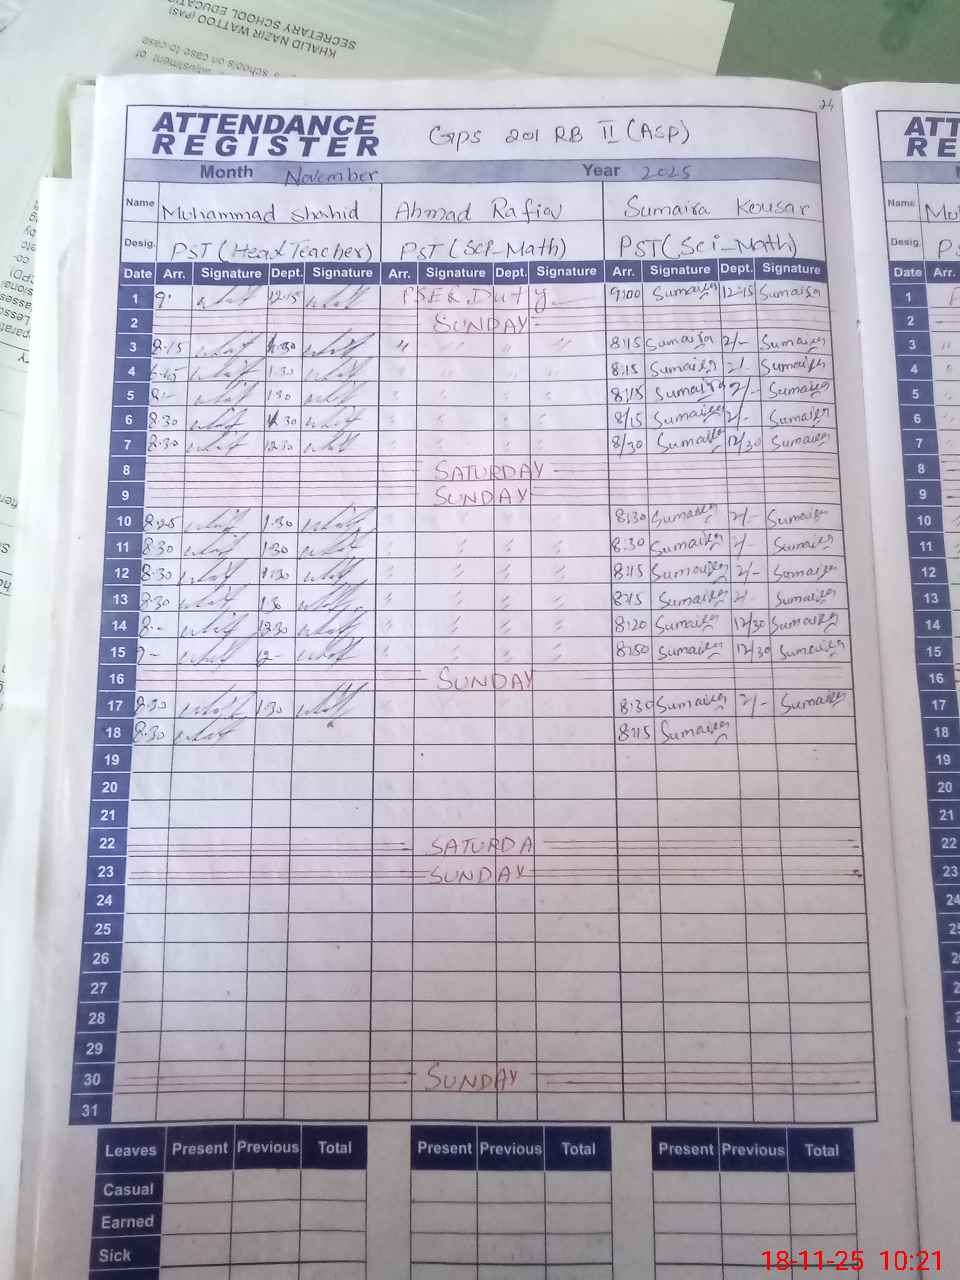 SECRETARY SCHOOL EDUCA
KHALID NAZIR WATTOO (PAS)
schools on case to case
adjustment of
24
ATTENDANCE REGISTER GPS 201 RB II (ASP)
Month November Year 2025
Name Muhammad Shahid Ahmad Rafiq Sumaira Kousar
Desig. PST (Head Teacher) PST (Sci-Math) PST (Sci-Math)
Date Arr. Signature Dept. Signature Arr. Signature Dept. Signature Arr. Signature Dept. Signature
1 9: 12-15 PSER Duty 9:00 Sumaira 12-15 Sumaira
2 SUNDAY
3 8-15 1.30 " " " " 8:15 Sumaira 2/- Sumaira
4 1.30 " " " " 8:15 Sumaira 2/- Sumaira
5 8:- 1.30 " " " " 8:15 Sumaira 2/- Sumaira
6 8.30 1.30 " " " " 8/15 Sumaira 2/- Sumaira
7 8.30 12.30 " " " " 8/30 Sumaira 12/30 Sumaira
8 SATURDAY
9 SUNDAY
10 8.25 1.30 " " " " 8:30 Sumaira 2/- Sumaira
11 8.30 1.30 " " " " 8:30 Sumaira 2/- Sumaira
12 8.30 1.30 " " " " 8:15 Sumaira 2/- Sumaira
13 8.30 1.30 " " " " 8:15 Sumaira 2/- Sumaira
14 8.- 12.30 " " " " 8:20 Sumaira 12/30 Sumaira
15 12- " " " " 8:50 Sumaira 12/30 Sumaira
16 SUNDAY
17 8.30 1.30 " " " " 8:30 Sumaira 2/- Sumaira
18 8.30 8:15 Sumaira
19
20
21
22 SATURDA
23 SUNDAY
24
25
26
27
28
29
30 SUNDAY
31
Leaves Present Previous Total Present Previous Total Present Previous Total
Casual
Earned
Sick
ATT
RE
Name Mu
Desig. P
Date Arr.
1
2
3
4
5
6
7
8
9
10
11
12
13
14
15
16
17
18
19
20
21
22
23
24
18-11-25 10:21